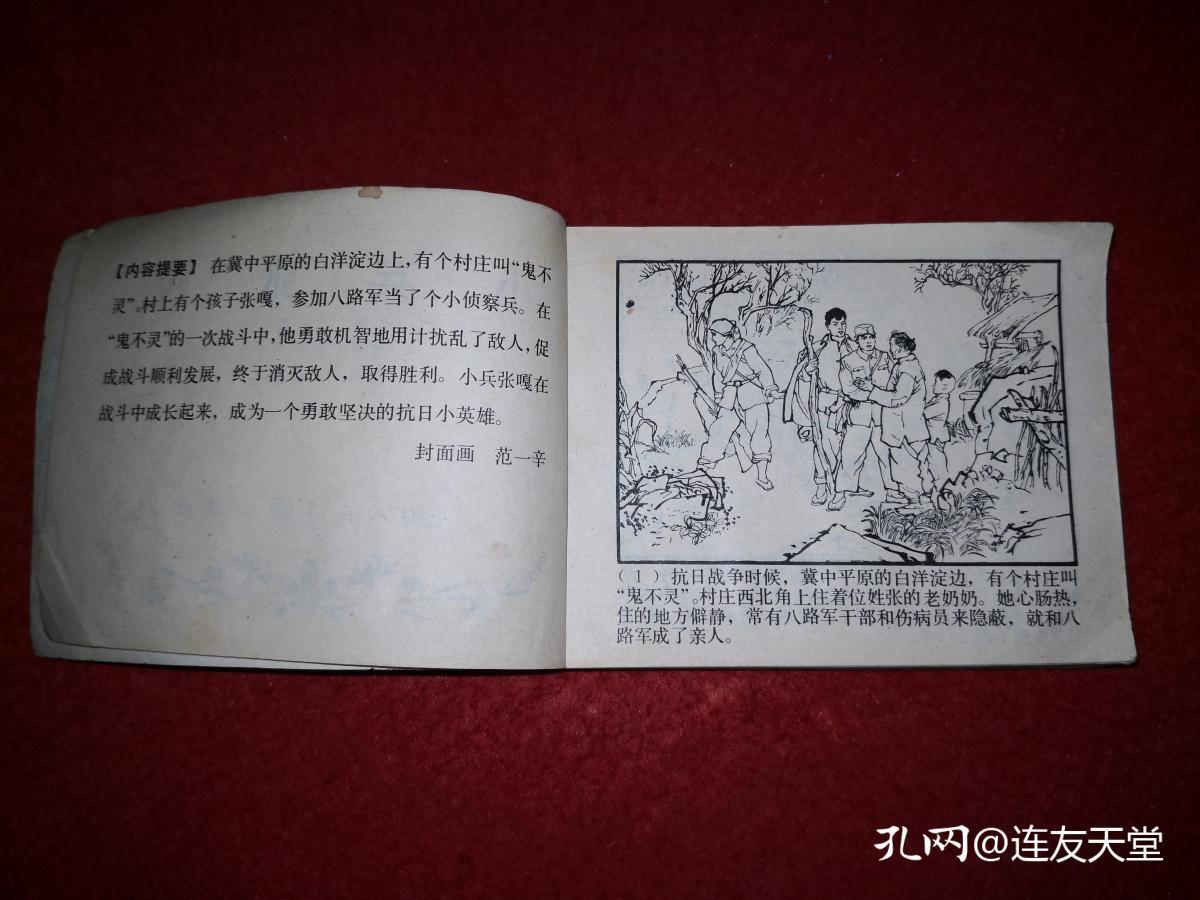 【内容提要】 在冀中平原的白洋淀边上，有个村庄叫“鬼不
灵”。村上有个孩子张嘎，参加八路军当了个小侦察兵。在
“鬼不灵”的一次战斗中，他勇敢机智地用计扰乱了敌人，促
成战斗顺利发展，终于消灭敌人，取得胜利。小兵张嘎在
战斗中成长起来，成为一个勇敢坚决的抗日小英雄。
封面画 范一辛
（1）抗日战争时候，冀中平原的白洋淀边，有个村庄叫
“鬼不灵”。村庄西北角上住着位姓张的老奶奶。她心肠热，
住的地方僻静，常有八路军干部和伤病员来隐蔽，就和八
路军成了亲人。
孔网@连友天堂